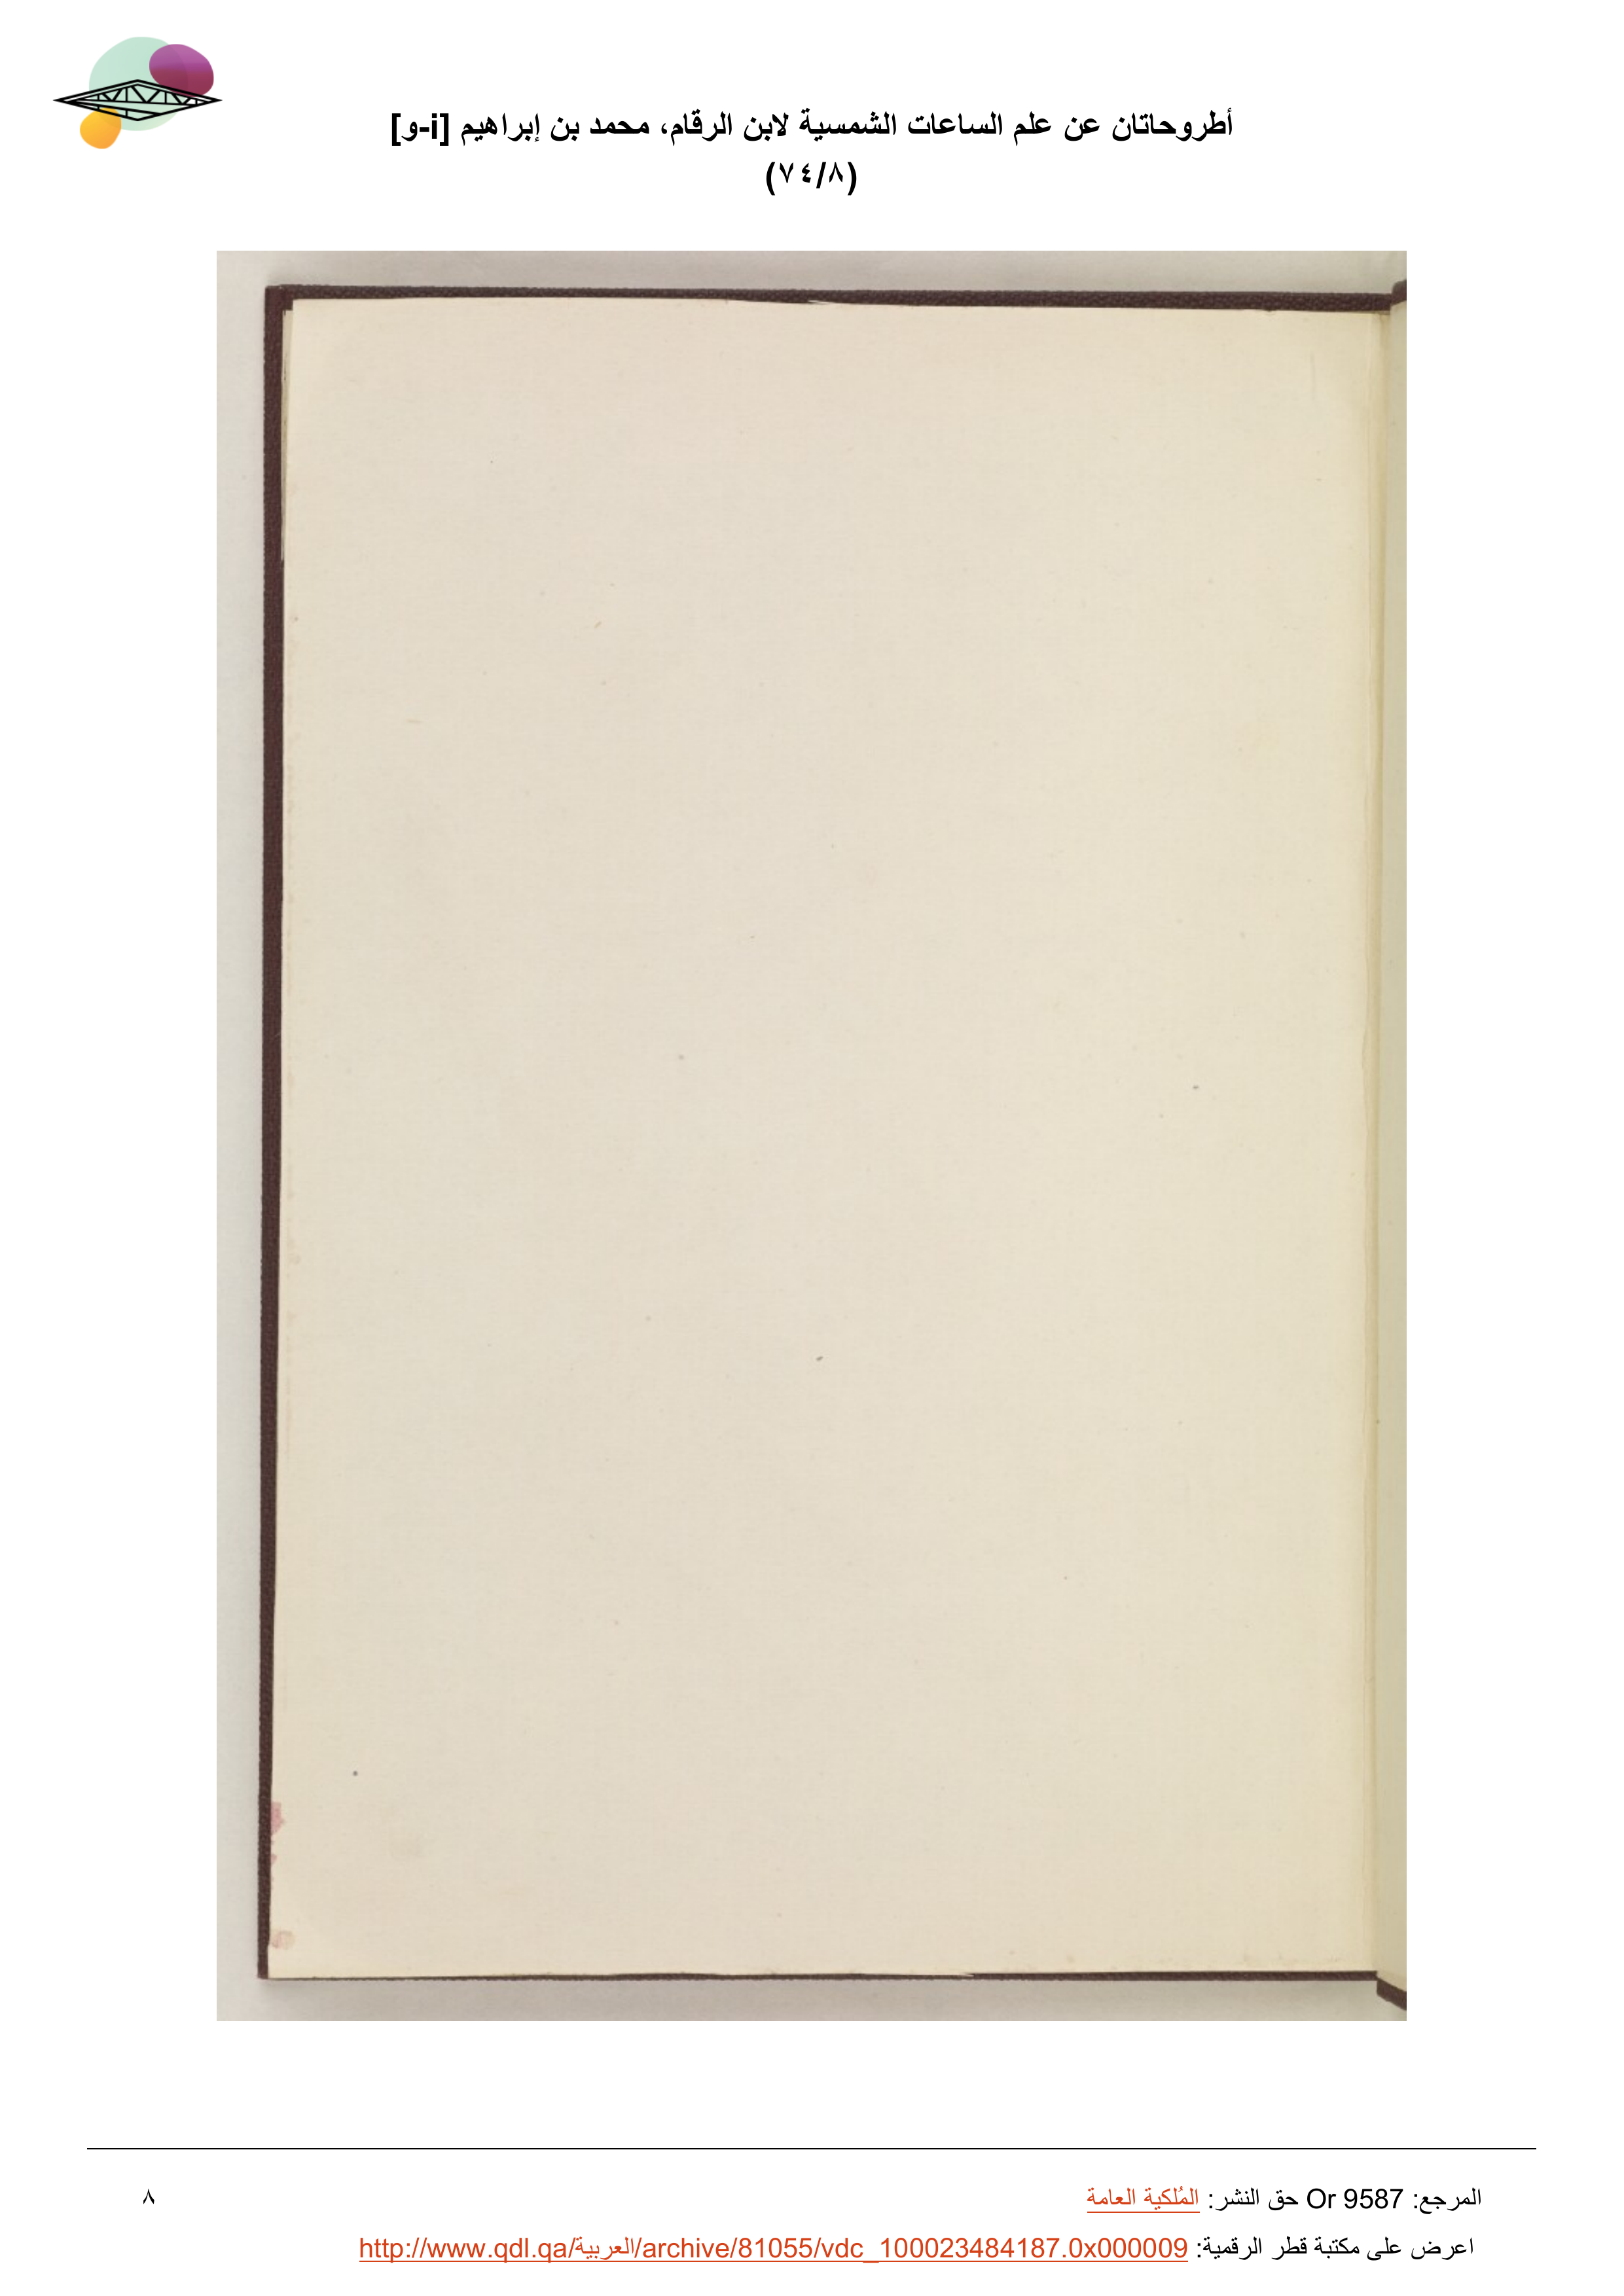 أطروحاتان عن علم الساعات الشمسية لابن الرقام، محمد بن إبراهيم [i-و]
(٧٤/٨)
المرجع: Or 9587 حق النشر: المُلكية العامة
٨
اعرض على مكتبة قطر الرقمية: http://www.qdl.qa/العربية/archive/81055/vdc_100023484187.0x000009